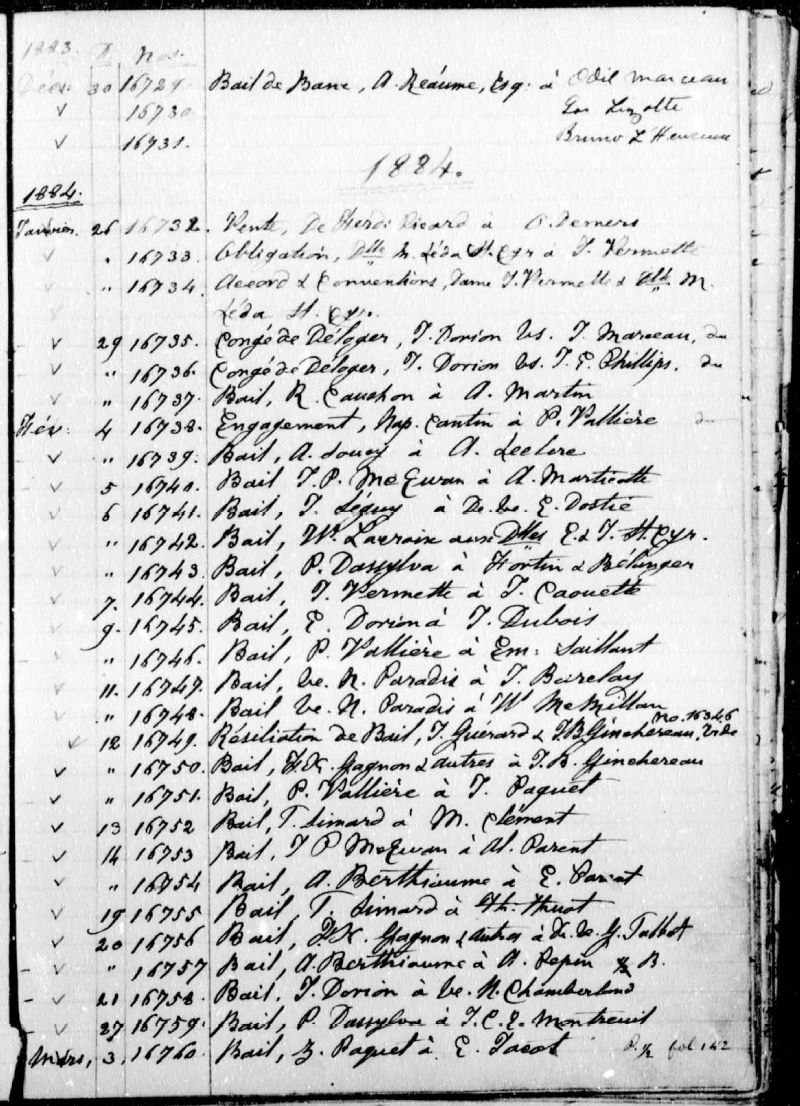 1883. D Nos.
Décr. 30 16729 Bail de Banc, A. Réaume, Esq. à Odil Marceau
✓ 16730 Lizotte
✓ 16731. Bruno L'Heureux
1884.
1884.
Janvier. 26 16732. Vente, De Ricard à O. Demers
✓ " 16733. Obligation, Dlle M. Léda St. Cyr à J. Vermette
" 16734. Accord & Conventions, Dame J. Vermette & Dlle M.
Léda St. Cyr.
✓ 29 16735. Congé de Déloger, J. Dorion Vs. J. Marceau, du
✓ " 16736. Congé de Déloger, J. Dorion Vs. J. E. Phillips. du
✓ " 16737. Bail, R. Cauchon à A. Martin
Fév. 4 16738. Engagement, Nap. Cantin à P. Vallière
✓ " 16739. Bail, A. Soucy à A. Leclerc
✓ 5 16740. Bail J. P. McEwan à A. Marticotte
✓ 6 16741. Bail, J. Séguy à De. Ve. E. Dostie
✓ " 16742. Bail, Wm. Lacroix aux Dlles E. & J. St. Cyr.
✓ " 16743. Bail, P. Dassylva à Fortin & Bélanger
✓ 7. 16744. Bail, J. Vermette à J. Caouette
✓ 9. 16745. Bail, E. Dorion à J. Dubois
✓ " 16746. Bail, P. Vallière à Em: Vaillant
✓ 11. 16747. Bail, Ve. N. Paradis à J. Barclay
✓ " 16748. Bail Ve. N. Paradis à W McMillan
✓ 12 16749. Résiliation de Bail, J. Guérard & J. B Ginchereau, Vide No. 16346
✓ " 16750. Bail, F. X. Gagnon & autres à J. B. Ginchereau
✓ " 16751. Bail, P. Vallière à J. Paquet
✓ 13 16752 Bail, T. Simard à M. Clément
✓ 14 16753 Bail, J P McEwan à Al. Parent
✓ " 16754 Bail, A. Berthiaume à E. Parent
✓ 19 16755 Bail, T. Simard à Th. Huot
✓ 20 16756 Bail, F. X. Gagnon & autres à De. Ve. G. Talbot
✓ " 16757 Bail, A. Berthiaume à A. Pepin ½ B.
✓ 21 16758. Bail. J. Dorion à Ve. N. Chamberland
✓ 27 16759. Bail, P. Dassylva à J. C. E. Montreuil
Mars, 3, 16760. Bail, Z. Paquet à E. Jacot P. ½ fol 142